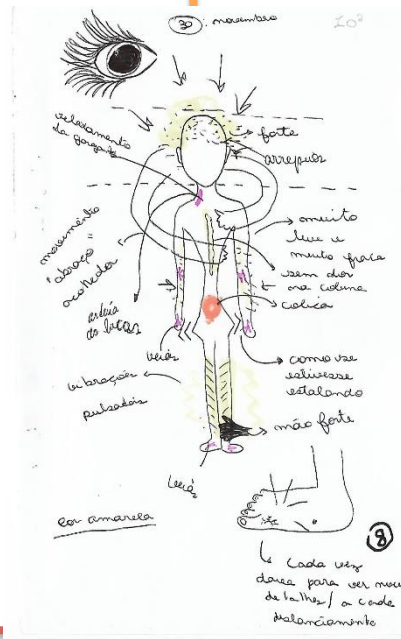 30 : novembro
relaxamento
da garganta
forte
arrepios
movimento
=
abraço
acolhedor
muito
leve e
muito fraca
sem dor
na coluna
cólica
veias
vibrações
pulsadas
como se
estivesse
estalando
mão forte
cor amarela
8
Cada vez
dava para ver mais
detalhes / a cada
balanciamento